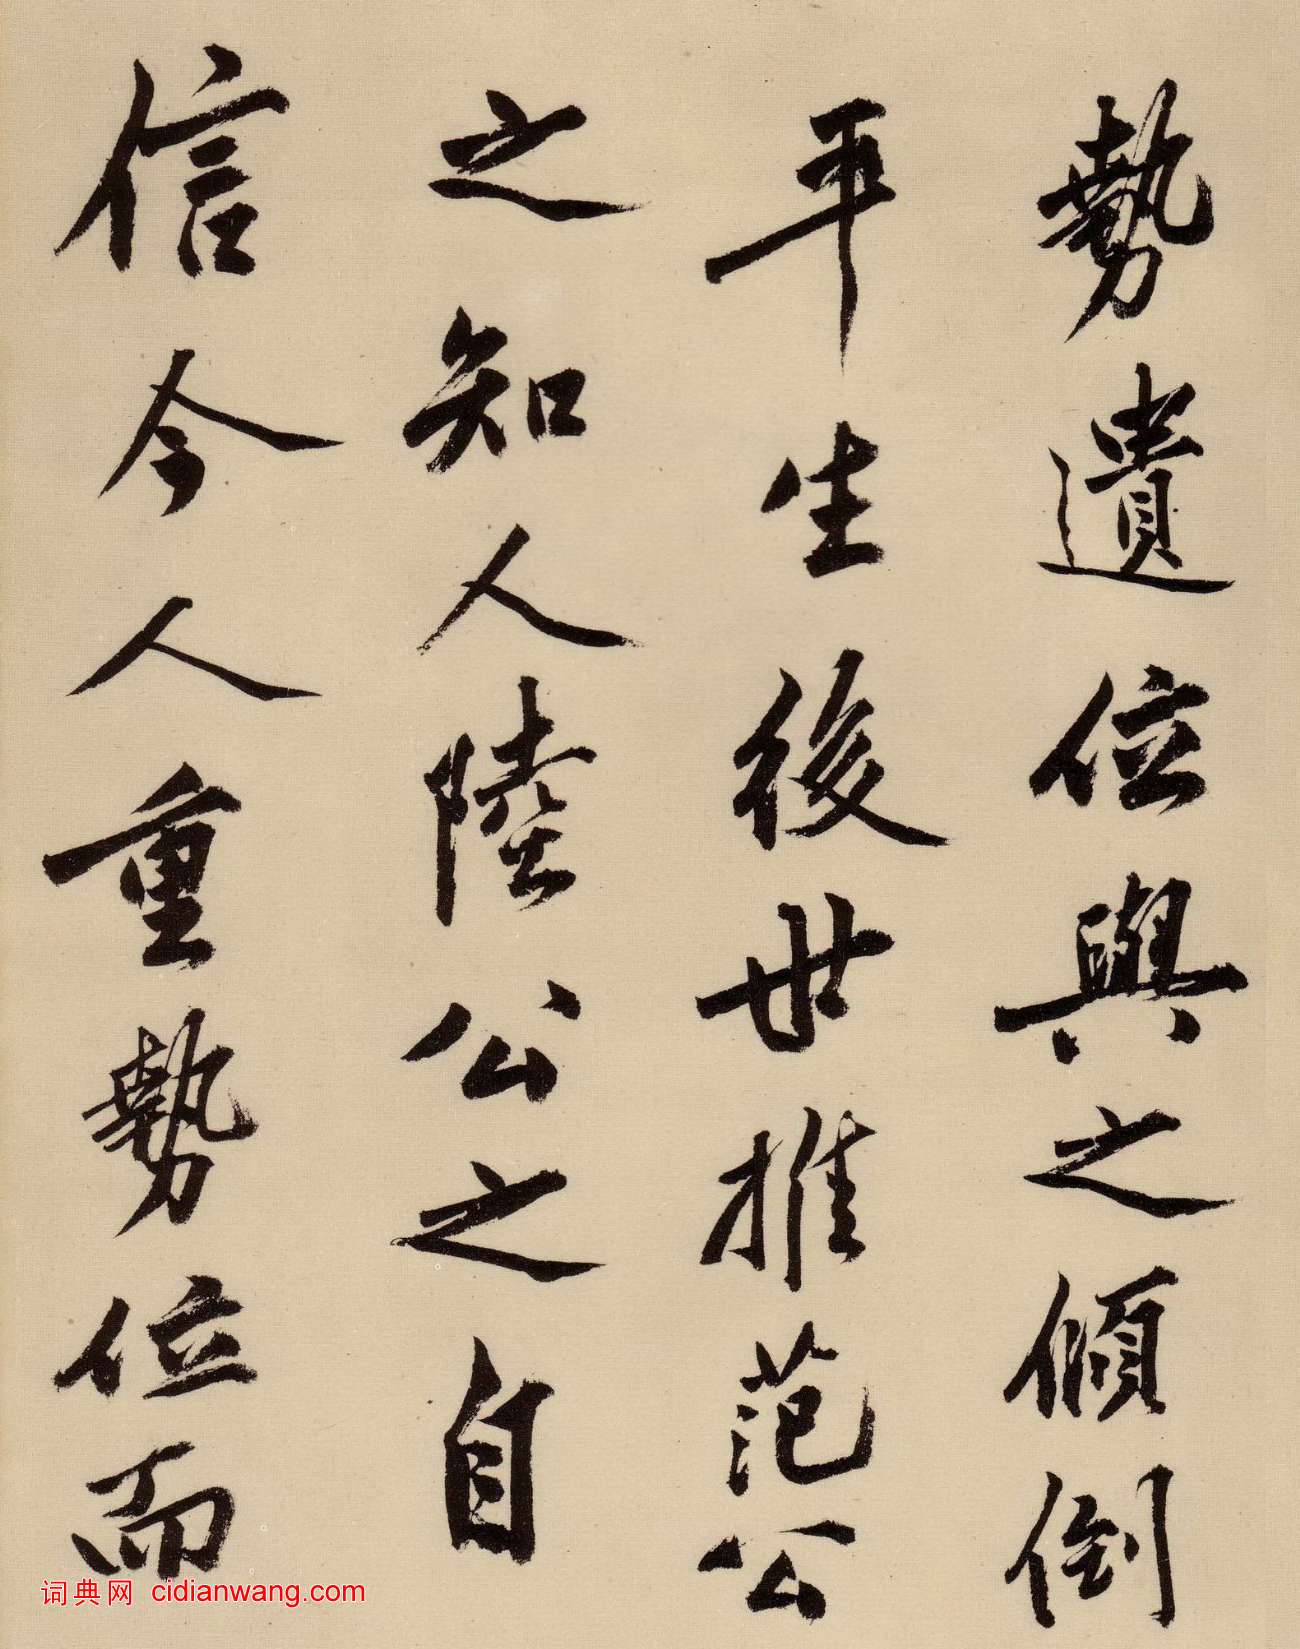 勢遺位與之傾倒
平生後世推范公
之知人陸公之自
信今人重勢位而
词典网 cidianwang.com